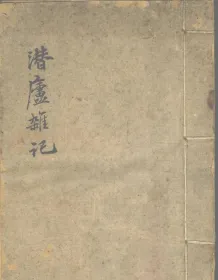 潜廬雜记